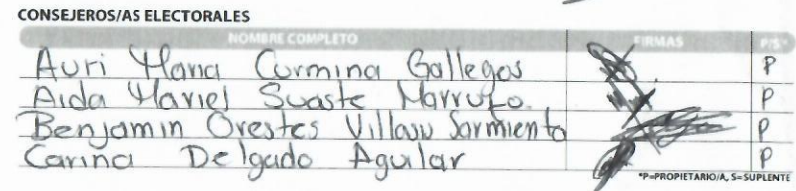 CONSEJEROS/AS ELECTORALES
NOMBRE COMPLETO FIRMAS P/S*
Auri Maria Curmina Gallegos P
Aida Mariel Suaste Marrufo. P
Benjamin Orestes Sarmiento P
Carina Delgado Aguilar P
*P=PROPIETARIO/A, S=SUPLENTE